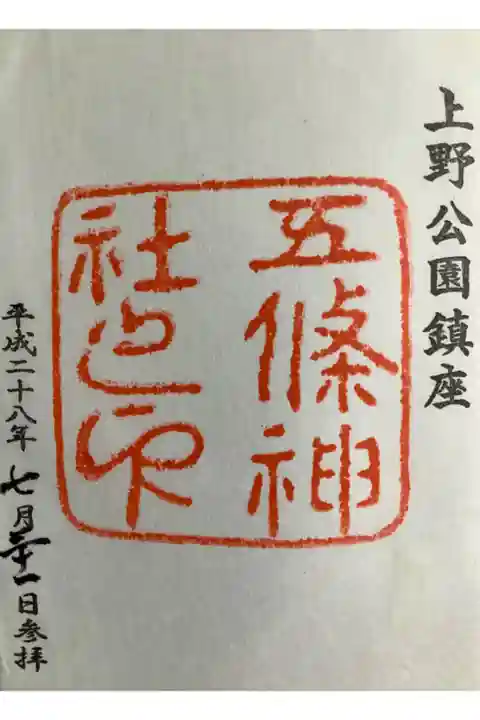 上野公園鎮座
五條神
社之印
平成二十八年七月三十一日参拝